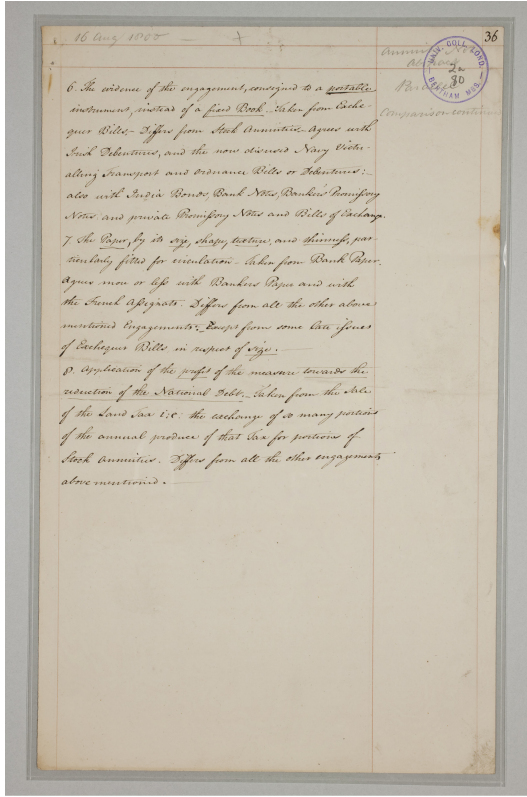 16 Aug 1800 — +
36
Annuity Note
Abstract
UNIV. COLL. LOND.
2a
30
BENTHAM MSS.
Comparison continued
6. The evidence of the engagement, consigned to a portable
instrument, instead of a fixed Book. Taken from Exche-
quer Bills. Differs from Stock Annuities. Agrees with
Irish Debentures, and the now disused Navy Victu-
alling Transport and Ordnance Bills or Debentures:
also with India Bonds, Bank Notes, Banker's Promissory
Notes and private Promissory Notes and Bills of Exchange.
7. The Paper, by its size, shape, texture, and thinness, par-
ticularly fitted for circulation. Taken from Bank Paper.
Agrees more or less with Bankers Paper and with
the French Assignats. Differs from all the other above
mentioned Engagements. Except from some late issues
of Exchequer Bills in respect of size.
8. Application of the profit of the measure towards the
reduction of the National Debt. Taken from the Sale
of the Land Tax i:e: the exchange of so many portions
of the annual produce of that Tax for portions of
Stock Annuities. Differs from all the other engagements
above mentioned.